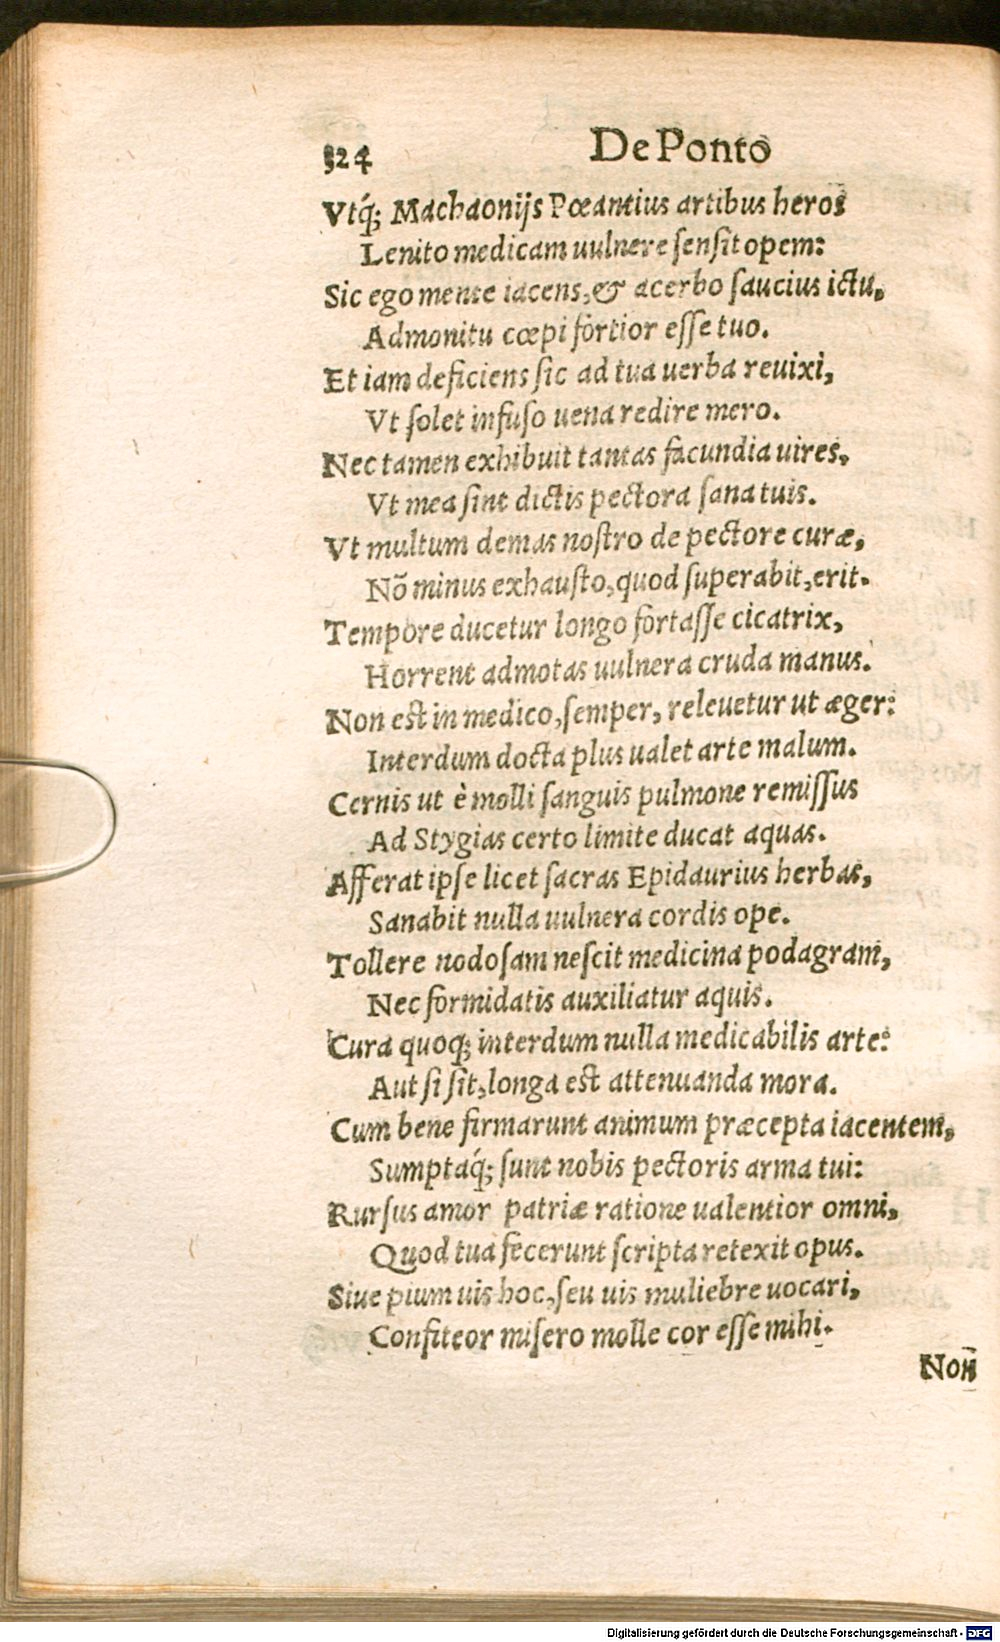 324 De Ponto
Vtq́; Machaonijs Pœantius artibus heros
Lenito medicam uulnere ſenſit opem:
Sic ego mente iacens, & acerbo ſaucius ictu,
Admonitu cœpi fortior eſſe tuo.
Et iam deficiens ſic ad tua uerba reuixi,
Vt ſolet infuſo uena redire mero.
Nec tamen exhibuit tantas facundia uires,
Vt mea ſint dictis pectora ſana tuis.
Vt multum demas noſtro de pectore curæ,
Nõ minus exhauſto, quod ſuperabit, erit.
Tempore ducetur longo fortaſſe cicatrix,
Horrent admotas uulnera cruda manus.
Non est in medico, ſemper, releuetur ut æger:
Interdum docta plus ualet arte malum.
Cernis ut è molli ſanguis pulmone remiſſus
Ad Stygias certo limite ducat aquas.
Afferat ipſe licet ſacras Epidaurius herbas,
Sanabit nulla uulnera cordis ope.
Tollere nodoſam neſcit medicina podagram,
Nec formidatis auxiliatur aquis.
Cura quoq; interdum nulla medicabilis arte:
Aut ſi ſit, longa est attenuanda mora.
Cum bene firmarunt animum præcepta iacentem,
Sumptaq́; ſunt nobis pectoris arma tui:
Rurſus amor patriæ ratione ualentior omni,
Quod tua fecerunt ſcripta retexit opus.
Siue pium uis hoc, ſeu uis muliebre uocari,
Confiteor miſero molle cor eſſe mihi.
Non
Digitalisierung gefördert durch die Deutsche Forschungsgemeinschaft - DFG